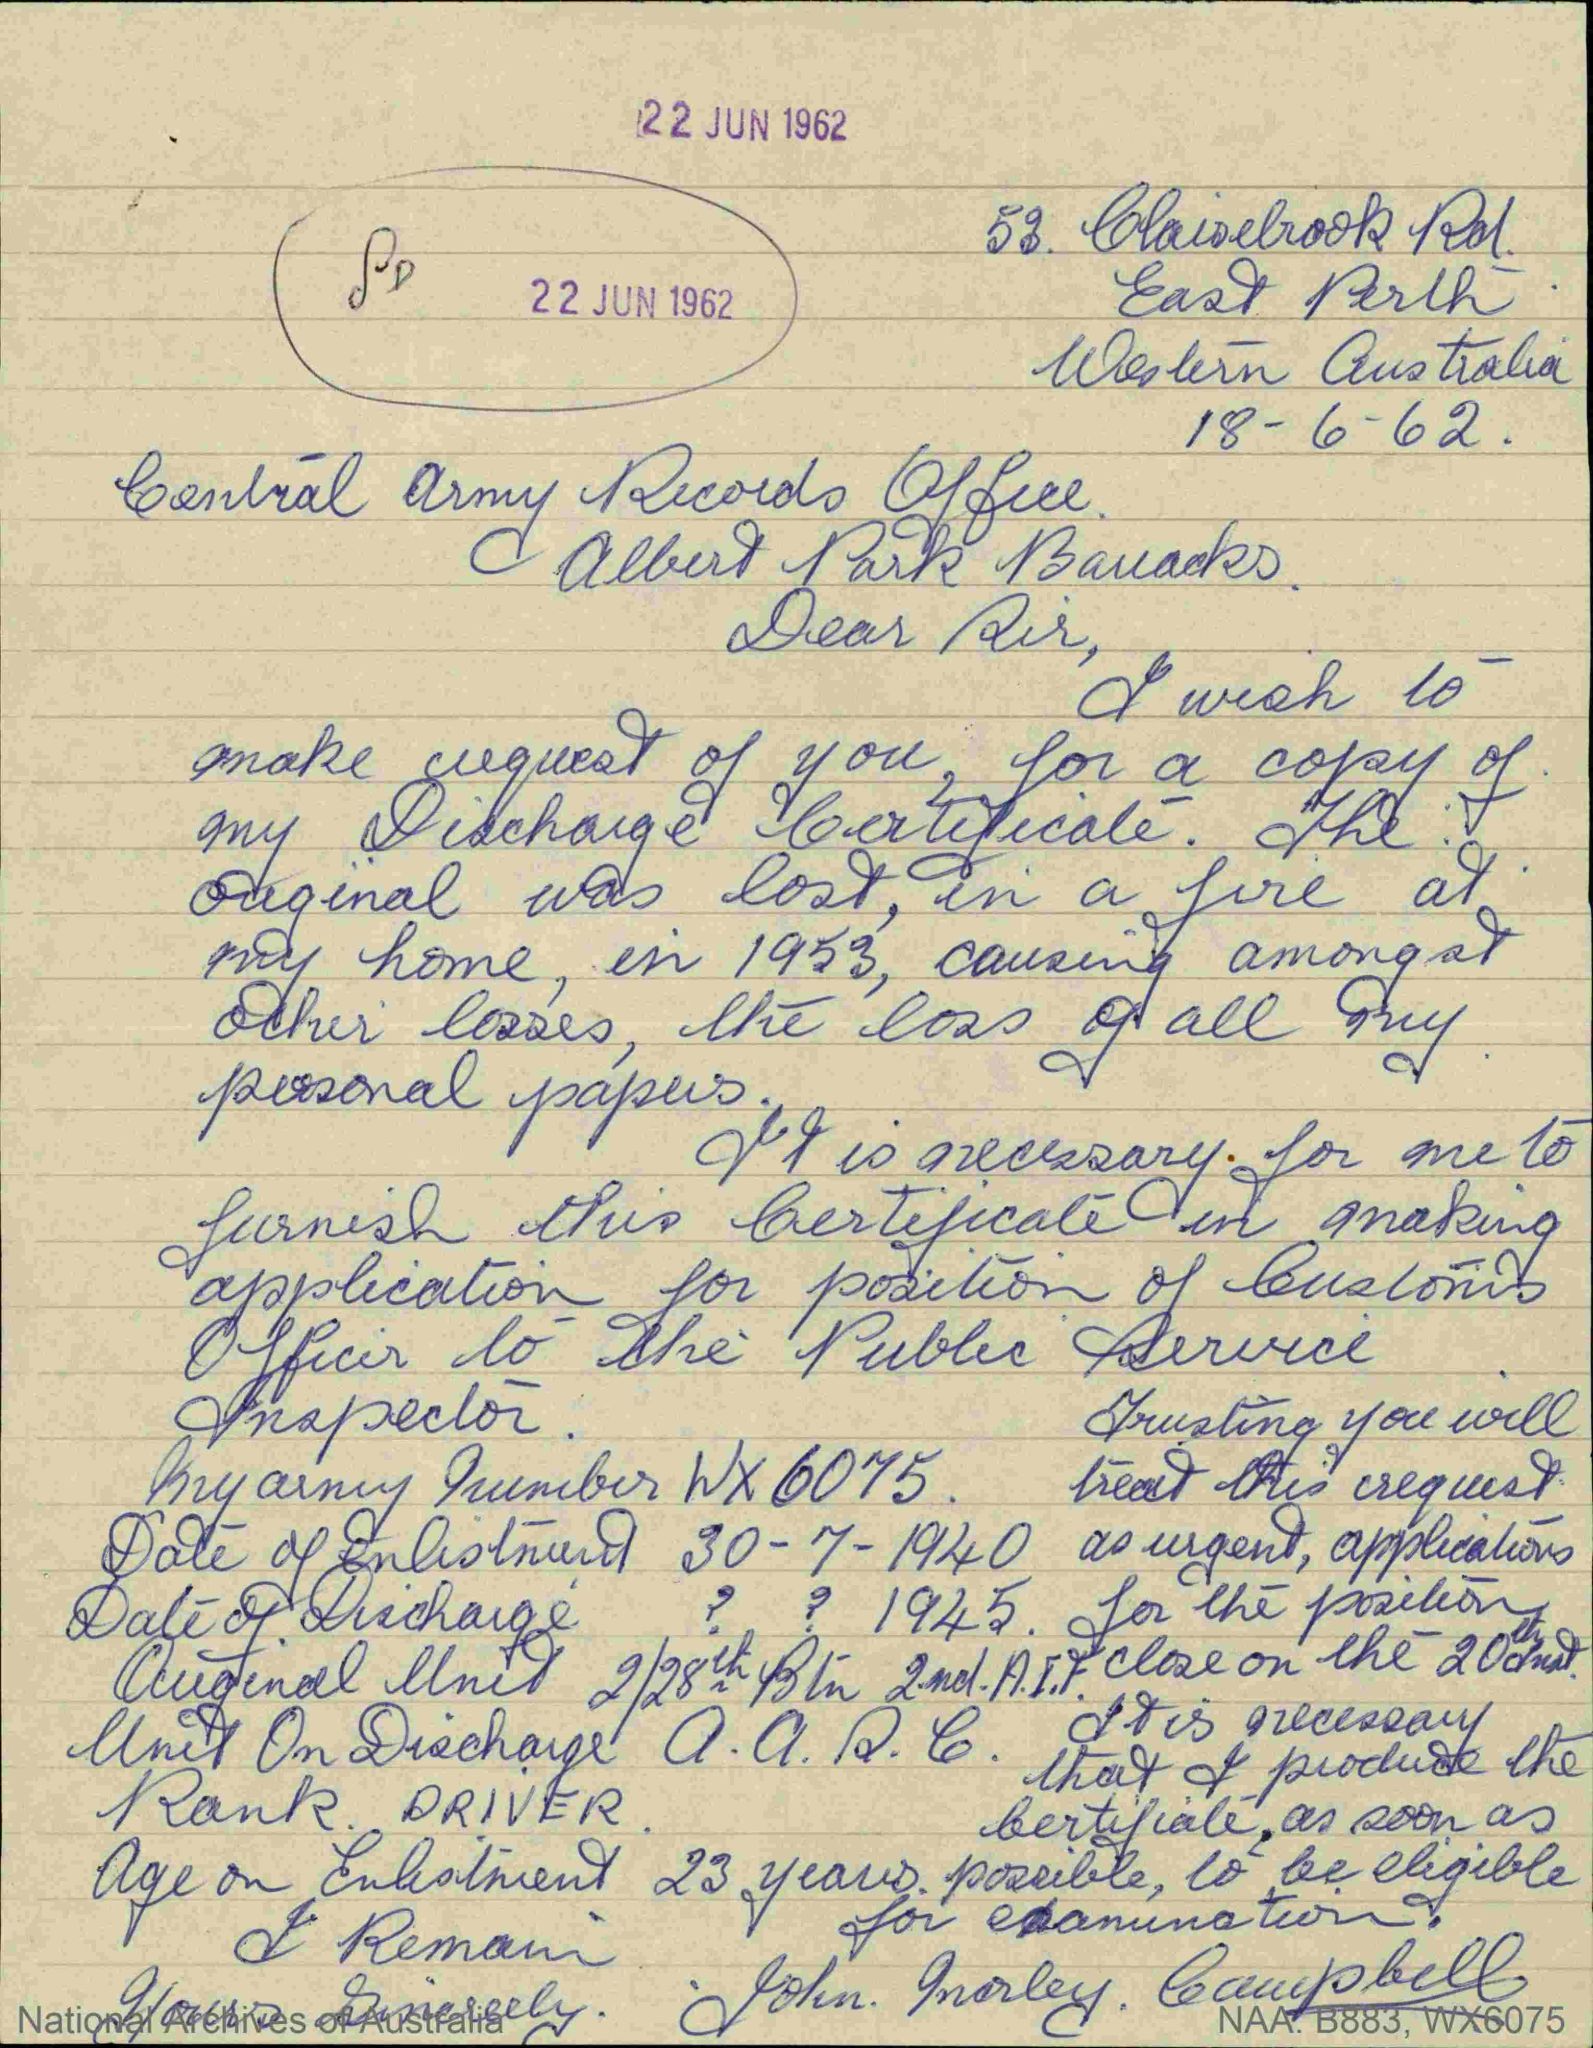 22 JUN 1962
22 JUN 1962
53. Claisebrook Rd.
East Perth
Western Australia
18-6-62.
Central Army Records Office.
Albert Park Barracks.
Dear Sir,
I wish to
make request of you, for a copy of
my Discharge Certificate. The
original was lost, in a fire at
my home, in 1953, causing amongst
other losses, the loss of all my
personal papers.
It is necessary for me to
furnish this Certificate in making
application for position of Customs
Officer to the Public Service
Inspector.
My army Number WX6075.
Date of Enlistment 30-7-1940
Date of Discharge ? ? 1945.
Original Unit 2/28th Btn 2nd. A.I.F.
Unit On Discharge A.A.S.C.
Rank. DRIVER.
Age on Enlistment 23 years.
Trusting you will
treat this request
as urgent, applications
for the position
close on the 20th inst.
It is necessary
that I produce the
certificate, as soon as
possible, to be eligible
for examination.
I Remain
Yours Sincerely.
John. Morley. Campbell
National Archives of Australia
NAA: B883, WX6075